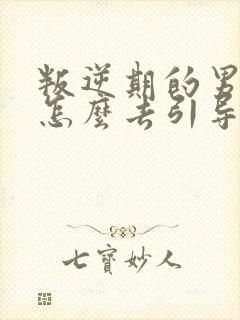 叛逆期的男
怎麼去引导
七寶妙人